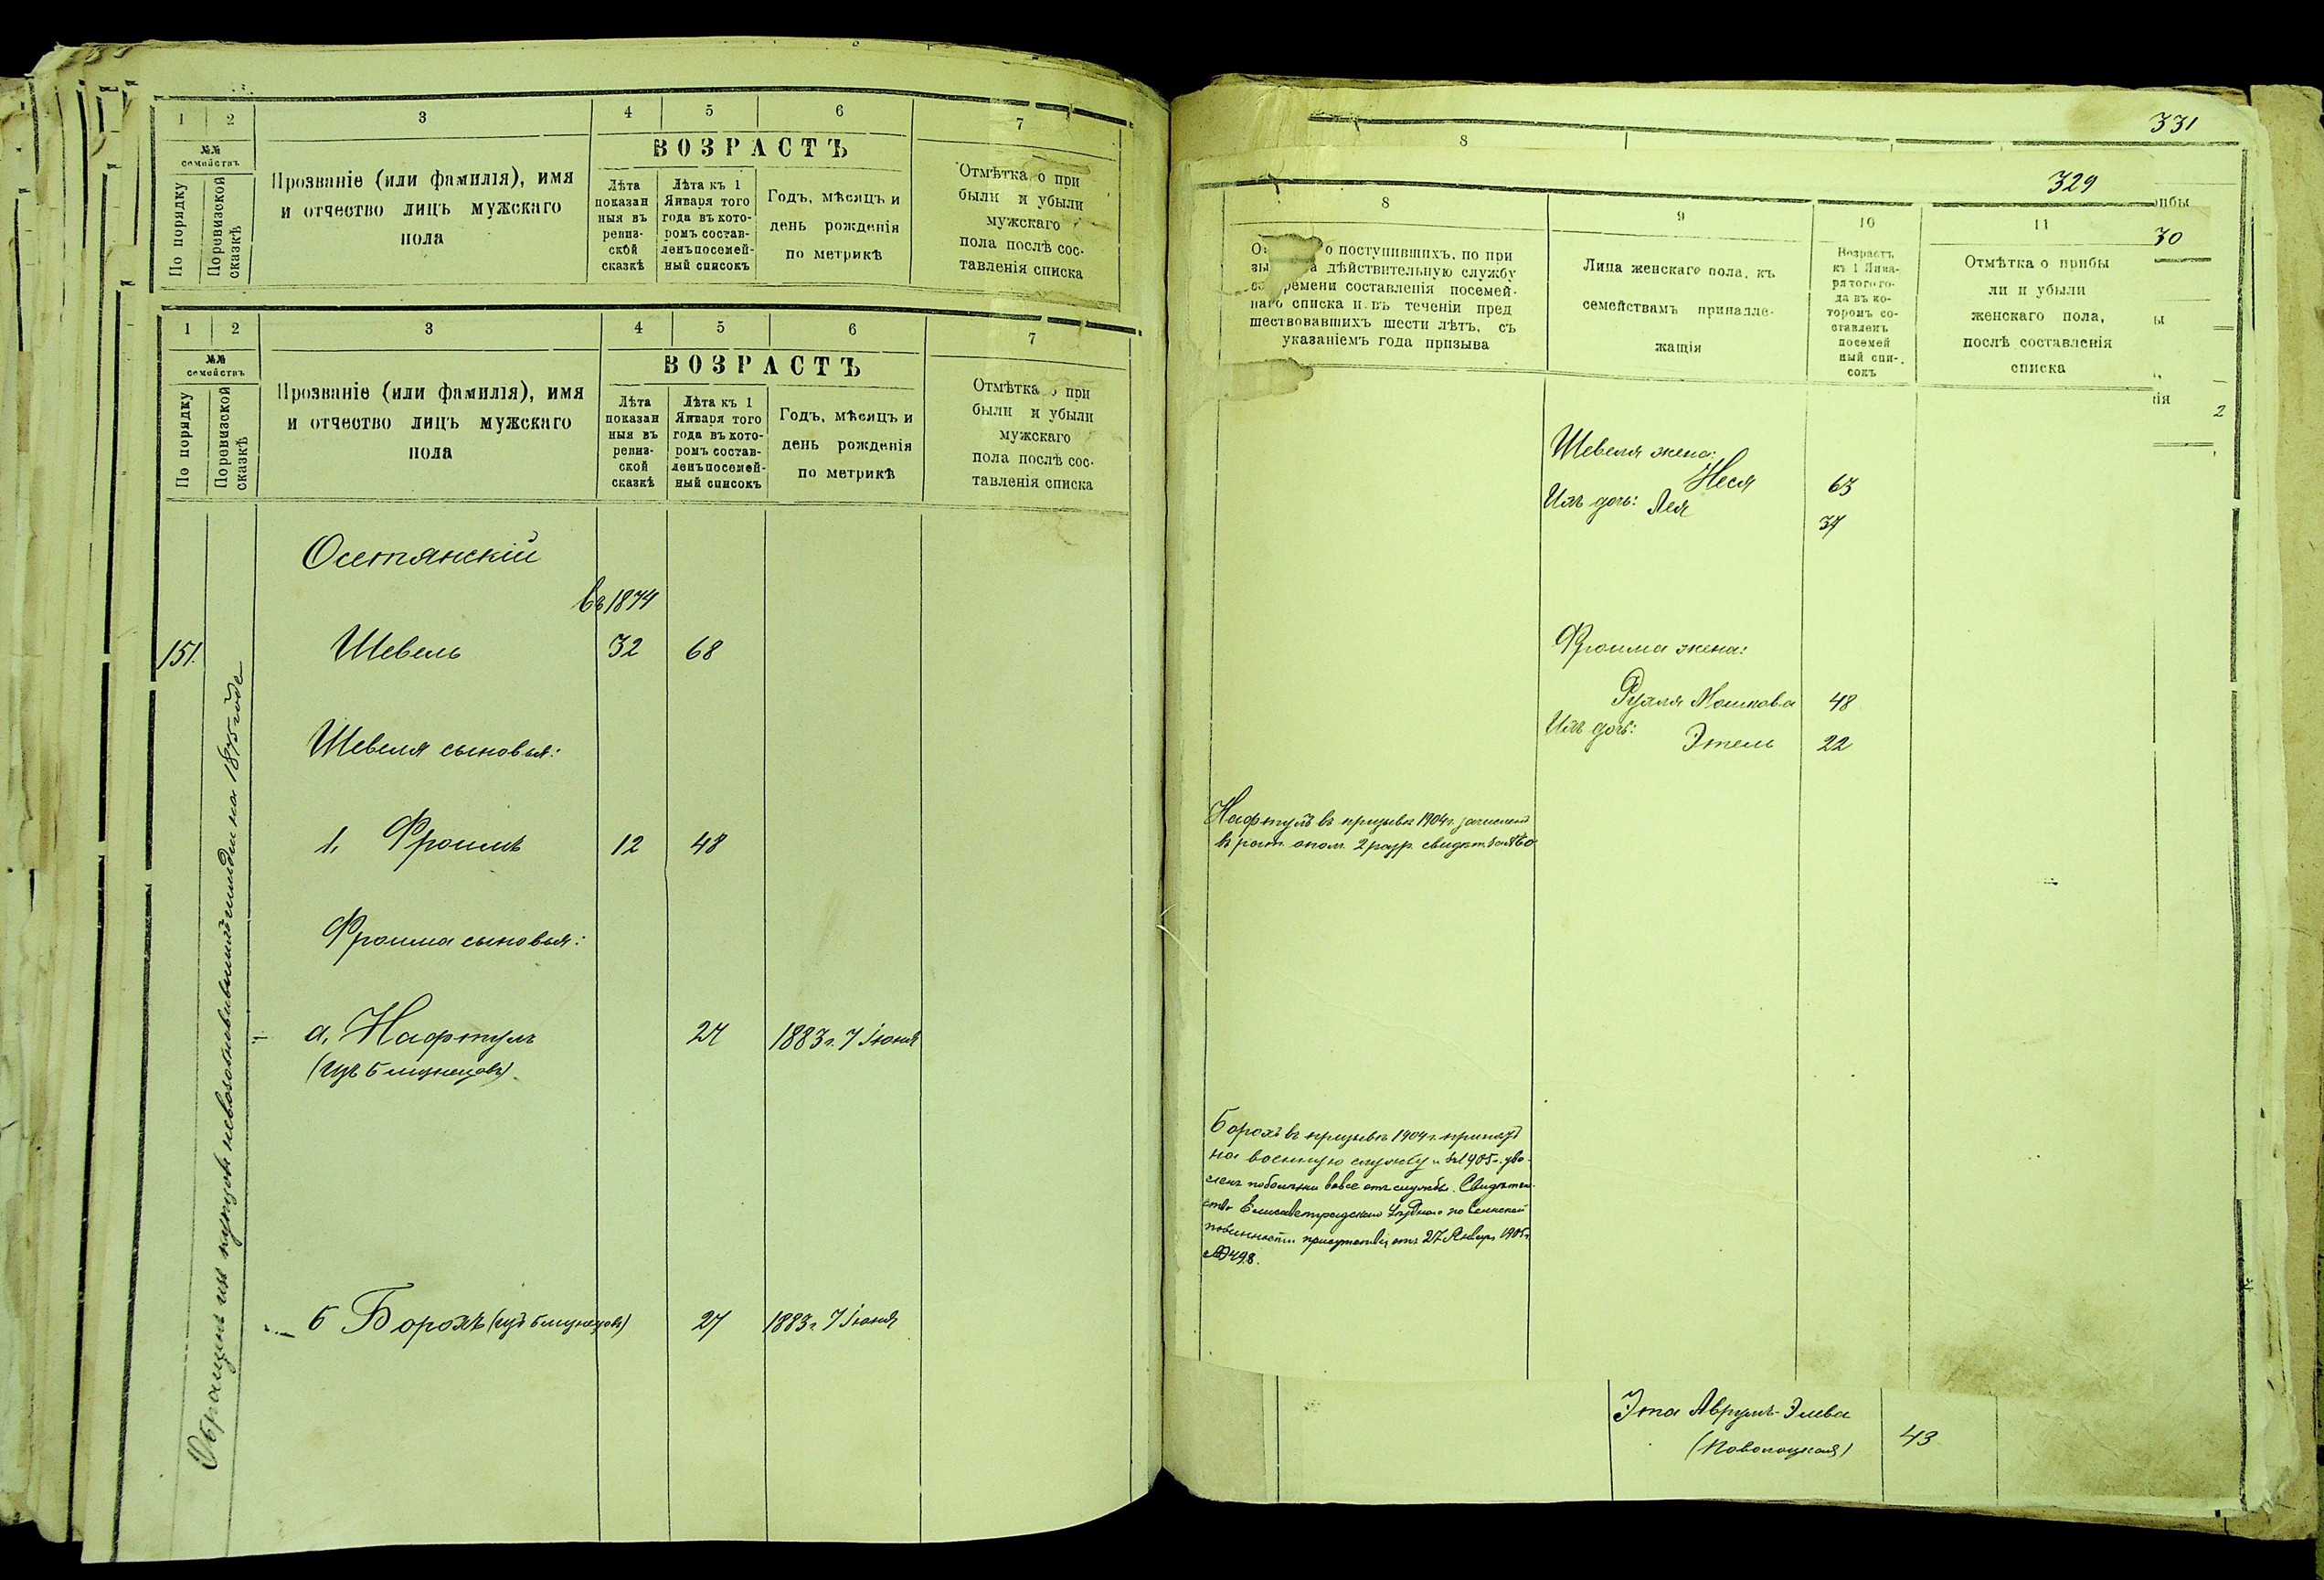 1
2
3
4
5
6
7
№№
семействъ
ВОЗРАСТЪ
По порядку
Поревизской
сказкѣ
Прозваніе (или фамилія), имя
и отчество лицъ мужскаго
пола
Лѣта
показан
ныя въ
ревиз-
ской
сказкѣ
Лѣта къ 1
Января того
года въ кото-
ромъ состав-
ленъ посемей-
ный списокъ
Годъ, мѣсяцъ и
день рожденія
по метрикѣ
Отмѣтка о при
были и убыли
мужскаго
пола послѣ сос-
тавленія списка
1
2
3
4
5
6
7
№№
семействъ
ВОЗРАСТЪ
По порядку
Поревизской
сказкѣ
Прозваніе (или фамилія), имя
и отчество лицъ мужскаго
пола
Лѣта
показан
ныя въ
ревиз-
ской
сказкѣ
Лѣта къ 1
Января того
года въ кото-
ромъ состав-
ленъ посемей-
ный списокъ
Годъ, мѣсяцъ и
день рожденія
по метрикѣ
Отмѣтка о при
были и убыли
мужскаго
пола послѣ сос-
тавленія списка
Осетянскій
въ 1874
151.
Шевель
32
68
Шевеля сыновья:
1, Фроимъ
12
48
Фроима сыновья:
а, Нафтулъ
27
1883 г. 7 Іюня
(изъ близнецовъ)
б Борохъ (изъ близнецовъ)
27
1883 г 7 Іюня
Обращенъ изъ купцовъ на 1875 годъ
331
8
329
8
9
10
11
о поступившихъ, по при
дѣйствительную службу
времени составленія посемей-
наго списка и въ теченіи пред
шествовавшихъ шести лѣтъ, съ
указаніемъ года призыва
Лица женскаго пола, къ
семействамъ принадле-
жащія
Возрастъ
къ 1 Янва-
ря того го-
да въ ко-
торомъ со-
ставленъ
посемей
ный спи-
сокъ
Отмѣтка о прибы
ли и убыли
женскаго пола,
послѣ составленія
списка
30
2
Шевеля жена:
Неся
63
Ихъ дочь: Лея
37
Фроима жена:
Рузля Мошкова
48
Ихъ дочь:
Этель
22
Нафтулъ въ призывъ 1904 г. зачисленъ
въ рат. опол. 2 разр. свидѣт.
Борохъ въ призывъ 1904 г. принятъ
на военную службу и въ 1905 г. уво-
ленъ по болѣзни вовсе отъ службы. Свидѣтель-
ство Елисаветградскаго Уѣзднаго по воинской
повинности присутствія отъ 27 Января 1905 г
№ 498.
Эта Аврумъ-Элева
43